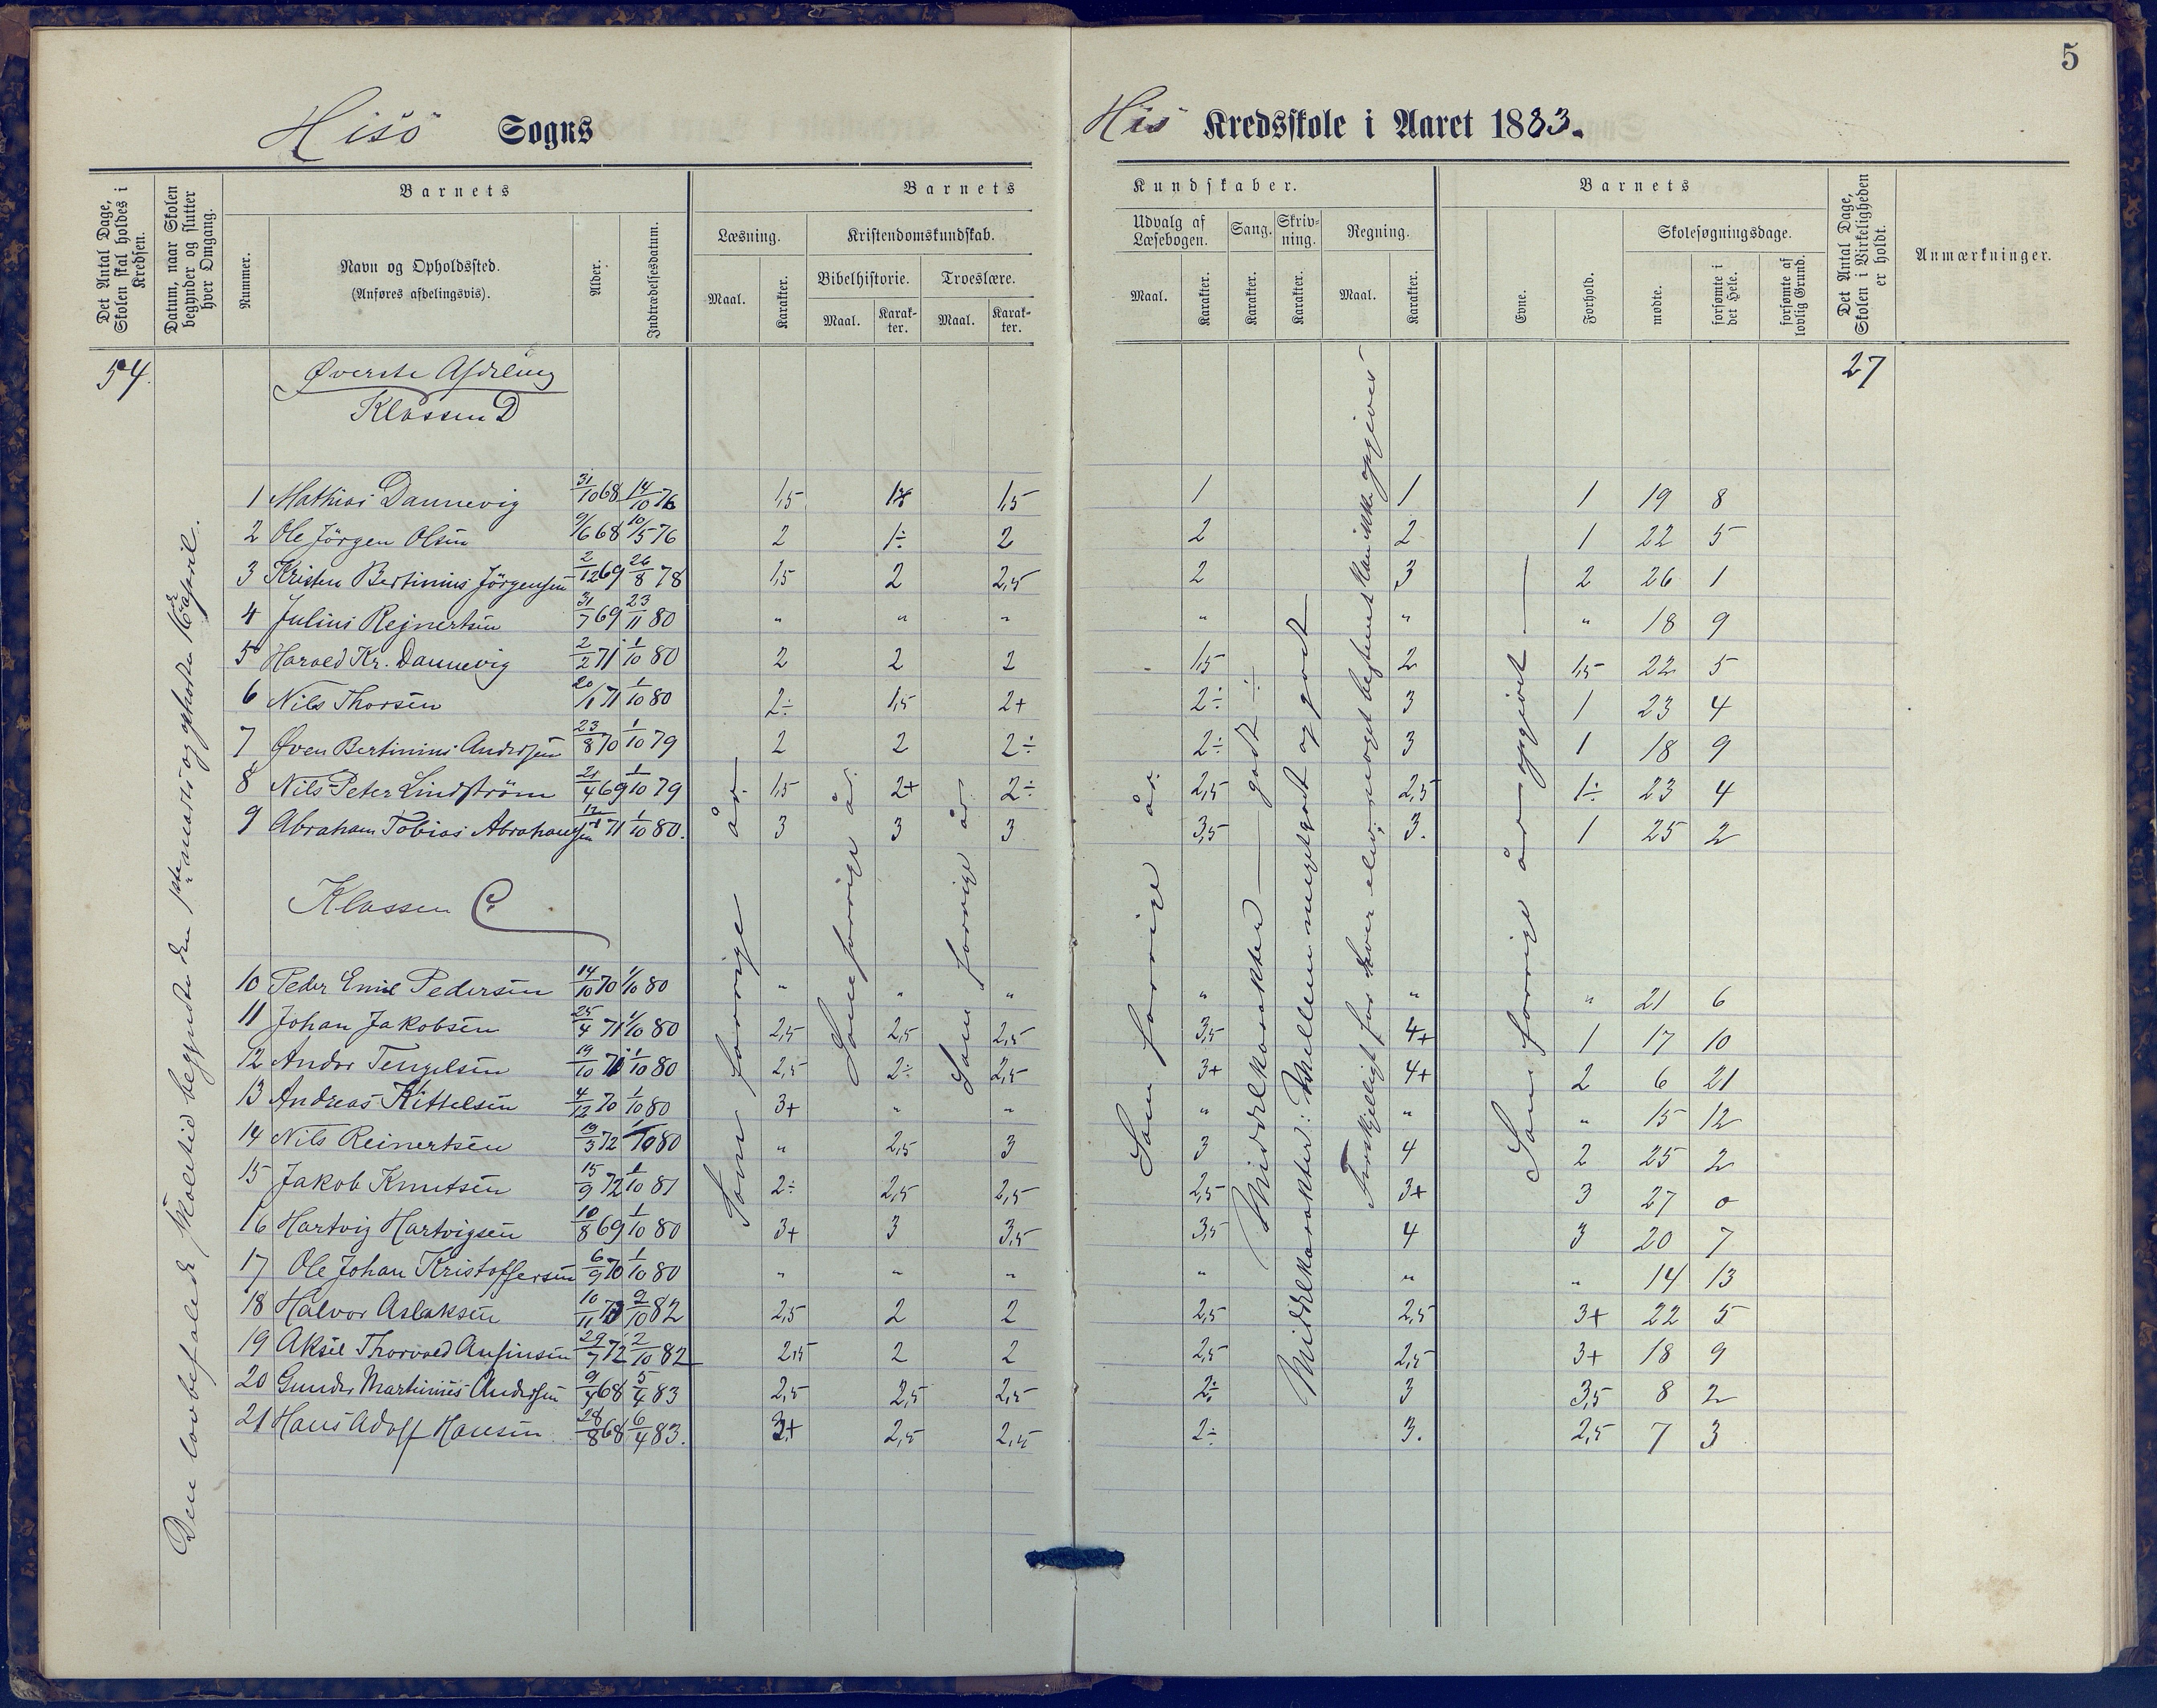 5
Hisö Sogns
His Kredsskole i Aaret 1883.
Det Antal Dage, Skolen skal holdes i Kredsen.
Datum, naar Skolen begynder og slutter hver Omgang.
Barnets
Nummer.
Navn og Opholdssted.
(Anføres afdelingsvis).
Alder.
Indtrædelsesdatum.
Barnets Kundskaber.
Læsning.
Maal. Karakter.
Kristendomskundskab.
Bibelhistorie. Troeslære.
Maal. Karakter. Maal. Karakter.
Udvalg af Læsebogen.
Maal. Karakter.
Sang. Karakter.
Skrivning. Karakter.
Regning.
Maal. Karakter.
Barnets
Evne. Forhold.
Skolesøgningsdage.
mødte. forsømte i det Hele. forsømte af lovlig Grund.
Det Antal Dage, Skolen i Virkeligheden er holdt.
Anmærkninger.
54. 27
Øverste Afdeling
Klassen D
1 Mathias Dannevig 31/10 68 14/10 76 1,5 1,5 1 1 1 19 8
2 Ole Jörgen Olsen 9/6 68 10/5 76 2 1÷ 2 2 2 1 22 5
3 Kristen Bertinius Jörgensen 2/12 69 26/8 78 1,5 2 2,5 2 3 2 26 1
4 Julius Rejnertsen 31/7 69 23/11 80 " " " " " " 18 9
5 Harald Kr. Dannevig 2/2 71 1/10 80 2 2 2 1,5 2 1,5 22 5
6 Nils Thorsen 20/1 71 1/10 80 2÷ 1,5 2+ 2÷ 3 1 23 4
7 Øven Bertinius Andersen 23/8 70 1/10 79 2 2 2÷ 2÷ 3 1 18 9
8 Nils Peter Lindström 21/4 69 1/10 79 1,5 2+ 2÷ 2,5 2,5 1÷ 23 4
9 Abraham Tobias Abrahamsen 71 1/10 80. 3 3 3 3,5 3. 1 25 2
Klassen C.
10 Peder Emil Pedersen 14/10 70 1/10 80 " " " " " " 21 6
11 Johan Jakobsen 25/4 71 1/10 80 2,5 2,5 2,5 3,5 4+ 1 17 10
12 Andor Tengelsen 19/10 1/10 80 2,5 2÷ 2,5 3+ 4+ 2 6 21
13 Andreas Kittelsen 4/12 70 1/10 80 3+ " " " " " 15 12
14 Nils Reinertsen 19/3 72 1/10 80 " 2,5 3 3 4 2 25 2
15 Jakob Knutsen 15/9 72 1/10 81 2÷ 2,5 2,5 2,5 3+ 3 27 0
16 Hartvig Hartvigsen 10/8 69 1/10 80 3+ 3 3,5 3,5 4 3 20 7
17 Ole Johan Kristoffersen 6/9 70 1/10 80 " " " " " " 14 13
18 Halvor Aslaksen 10/11 2/10 82 2,5 2 2 2,5 2,5 3+ 22 5
19 Aksel Thorvald Ansinsen 29/7 72 2/10 82 2,5 2 2 2,5 2,5 3+ 18 9
20 Gunder Martinius Andersen 9/4 68 5/4 83 2,5 2,5 2,5 2÷ 3 3,5 8 2
21 Hans Adolf Hansen 28/8 68 6/4 83. 3+ 2,5 2,5 2÷ 3. 2,5 7 3
Den lovbefalede Skoletid begyndte den 1ste marts og ophørte april.
Som forrige år.
Som forrige år.
Som forrige år.
Som forrige år.
Middelkarakter — godt ÷
Middelkarakter: Mellem meget godt og godt
Forskjelligt for hver elev; noget bestemt kan ikke opgives
Som forrige år opgivet